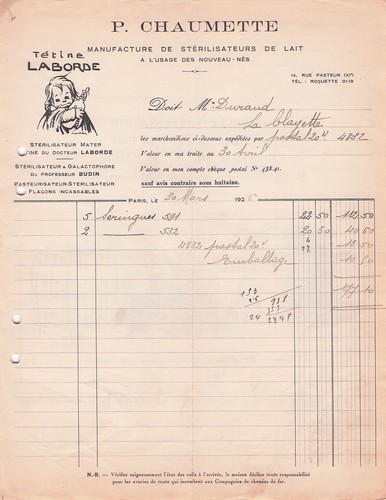 P. CHAUMETTE
MANUFACTURE DE STÉRILISATEURS DE LAIT
A L'USAGE DES NOUVEAU-NÉS
Tétine
LABORDE
14, RUE PASTEUR (XIe)
TÉL: ROQUETTE 01-18
Doit Mr Durand
La Clayette
les marchandises ci-dessous expédiées par postal 20 4832
Valeur en ma traite au 30 Avril
Valeur en mon compte chèque postal N°
sauf avis contraire sous huitaine.
STÉRILISATEUR MATER
TÉTINE DU DOCTEUR LABORDE
STÉRILISATEUR & GALACTOPHORE
DU PROFESSEUR BUDIN
PASTEURISATEUR-STÉRILISATEUR
FLACONS INCASSABLES
PARIS, le 30 Mars 192
5 Seringues 531 22 50 112 50
2 —— 532 20 30 40 60
postal 20
Emballag.
177 10
N.-B. — Vérifier soigneusement l'état des colis à l'arrivée, la maison décline toute responsabilité
pour les avaries de route qui incombent aux Compagnies de chemins de fer.